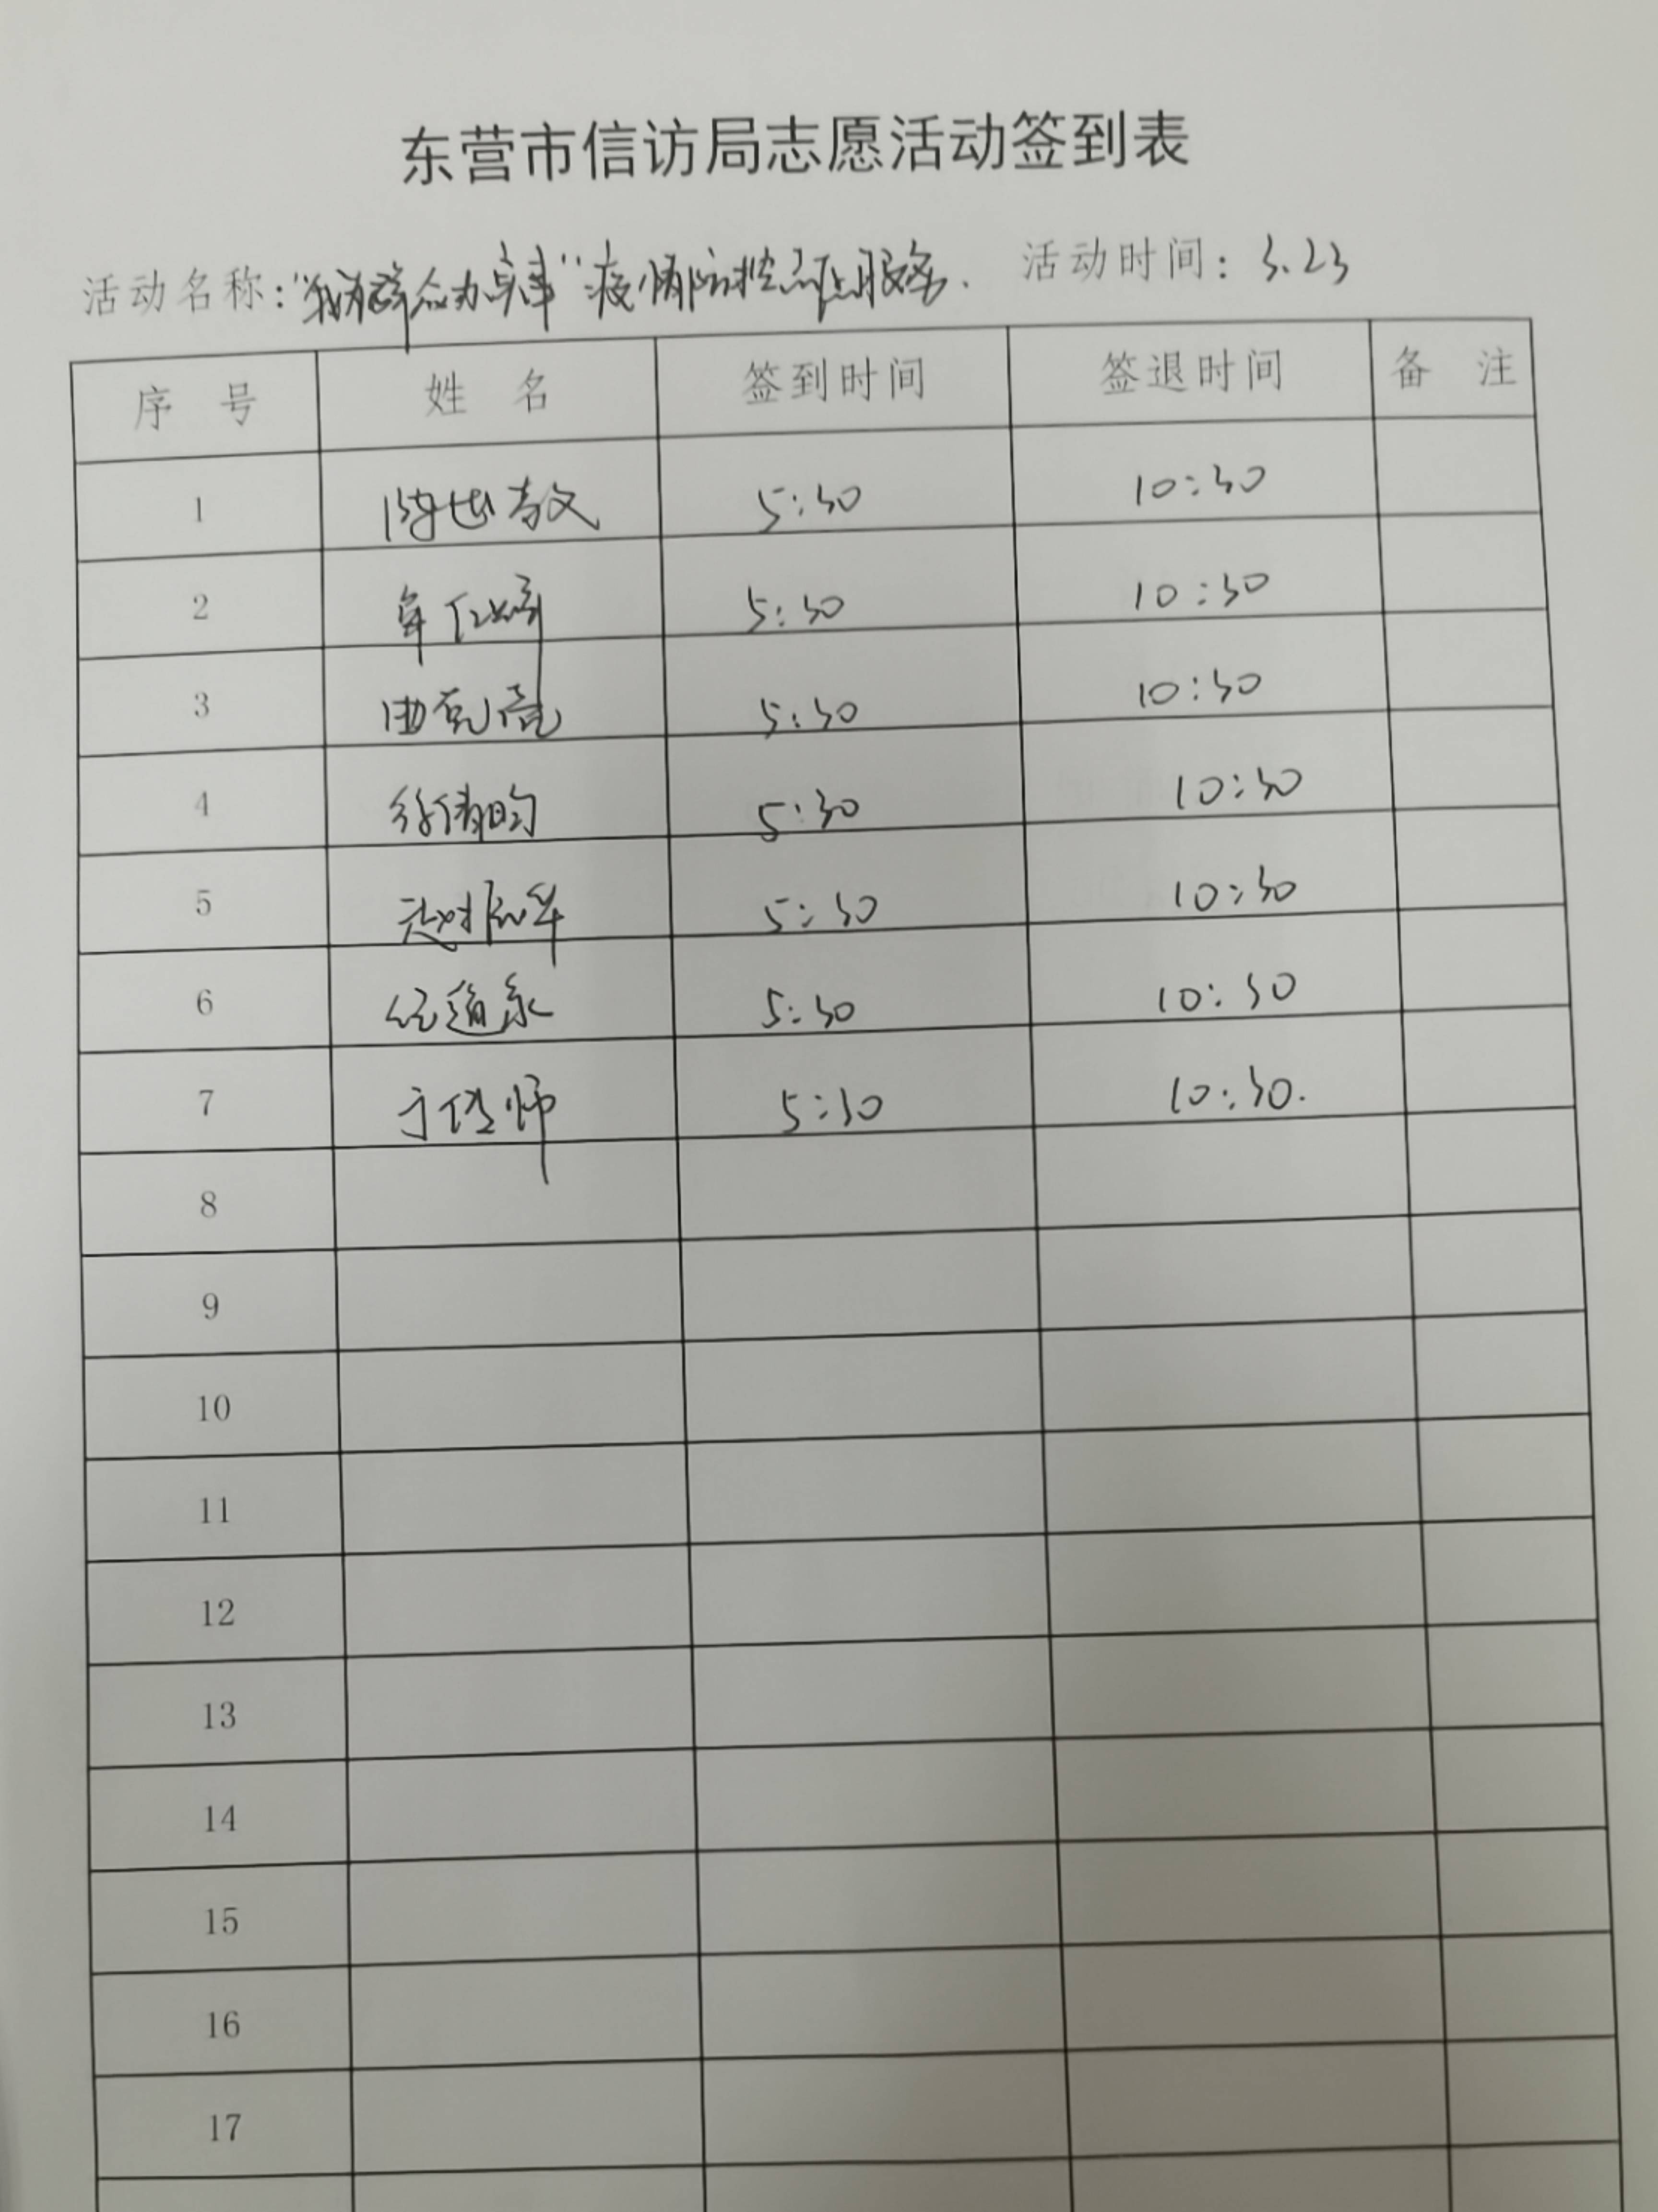 东营市信访局志愿活动签到表
活动名称：“我为群众办实事”疫情防控志愿服务. 活动时间：3.23
序 号 姓 名 签到时间 签退时间 备 注
1 5:30 10:30
2 5:30 10:30
3 曲克亮 5:30 10:30
4 徐倩昀 5:30 10:30
5 赵 军 5:30 10:30
6 5:30 10:30
7 于 师 5:30 10:30.
8
9
10
11
12
13
14
15
16
17